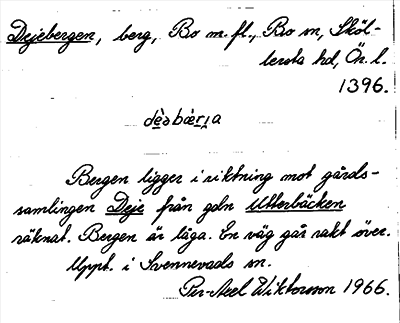 Dejebergen, berg, Bo m. fl., Bo sn, Sköl-
lersta hd, Ör. l.
1396.
dèǝbærɪa
Bergen ligger i riktning mot gårds-
samlingen Deje från gdn Utterbäcken
räknat. Bergen är låga. En väg går rakt över.
Uppt. i Svennevads sn.
Per-Axel Wiktorsson 1966.